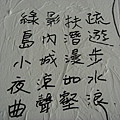 疏遊步水浪
扶潛漫如壑
影內城涼聲
綠島小夜曲